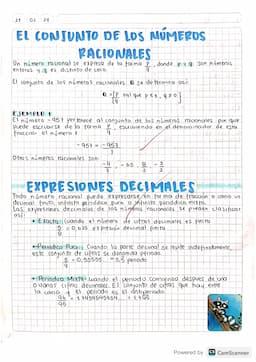 EL CONJUNTO DE LOS NÚMEROS
RACIONALES
Un número racional se expresa de la forma p/q, donde p y q son números
enteros y q es distinto de cero.
El conjunto de los números racionales Q se determina así:
Q = {p/q tal que p ∈ z, q ≠ 0}
EJEMPLO 1
El número -951 pertenece al conjunto de los números racionales por que
puede escribirse de la forma p/q, escribiendo en el denominador de esta
fracción el número 1
-951 = -951/1
Otros números racionales son
EXPRESIONES DECIMALES
Todo número racional puede expresarse en forma de fracción o como un
decimal finito, infinito periódico puro o infinito periódico mixto.
Las expresiones decimales de los números racionales se pueden clasificar
así:
• Exacta: cuando el número de cifras decimales es finita
= 0,625 expresión decimal finita
• Periódica Pura: Cuando la parte decimal se repite indefinidamente,
este conjunto de cifras se denomina periodo.
5/9 = 0,55555 periodo
• Periódica Mixta: cuando el periodo comienza después de una
o varias cifras decimales. El conjunto de cifras que hay entre
la coma y el periodo es el anteperiodo.
Powered by CS CamScanner